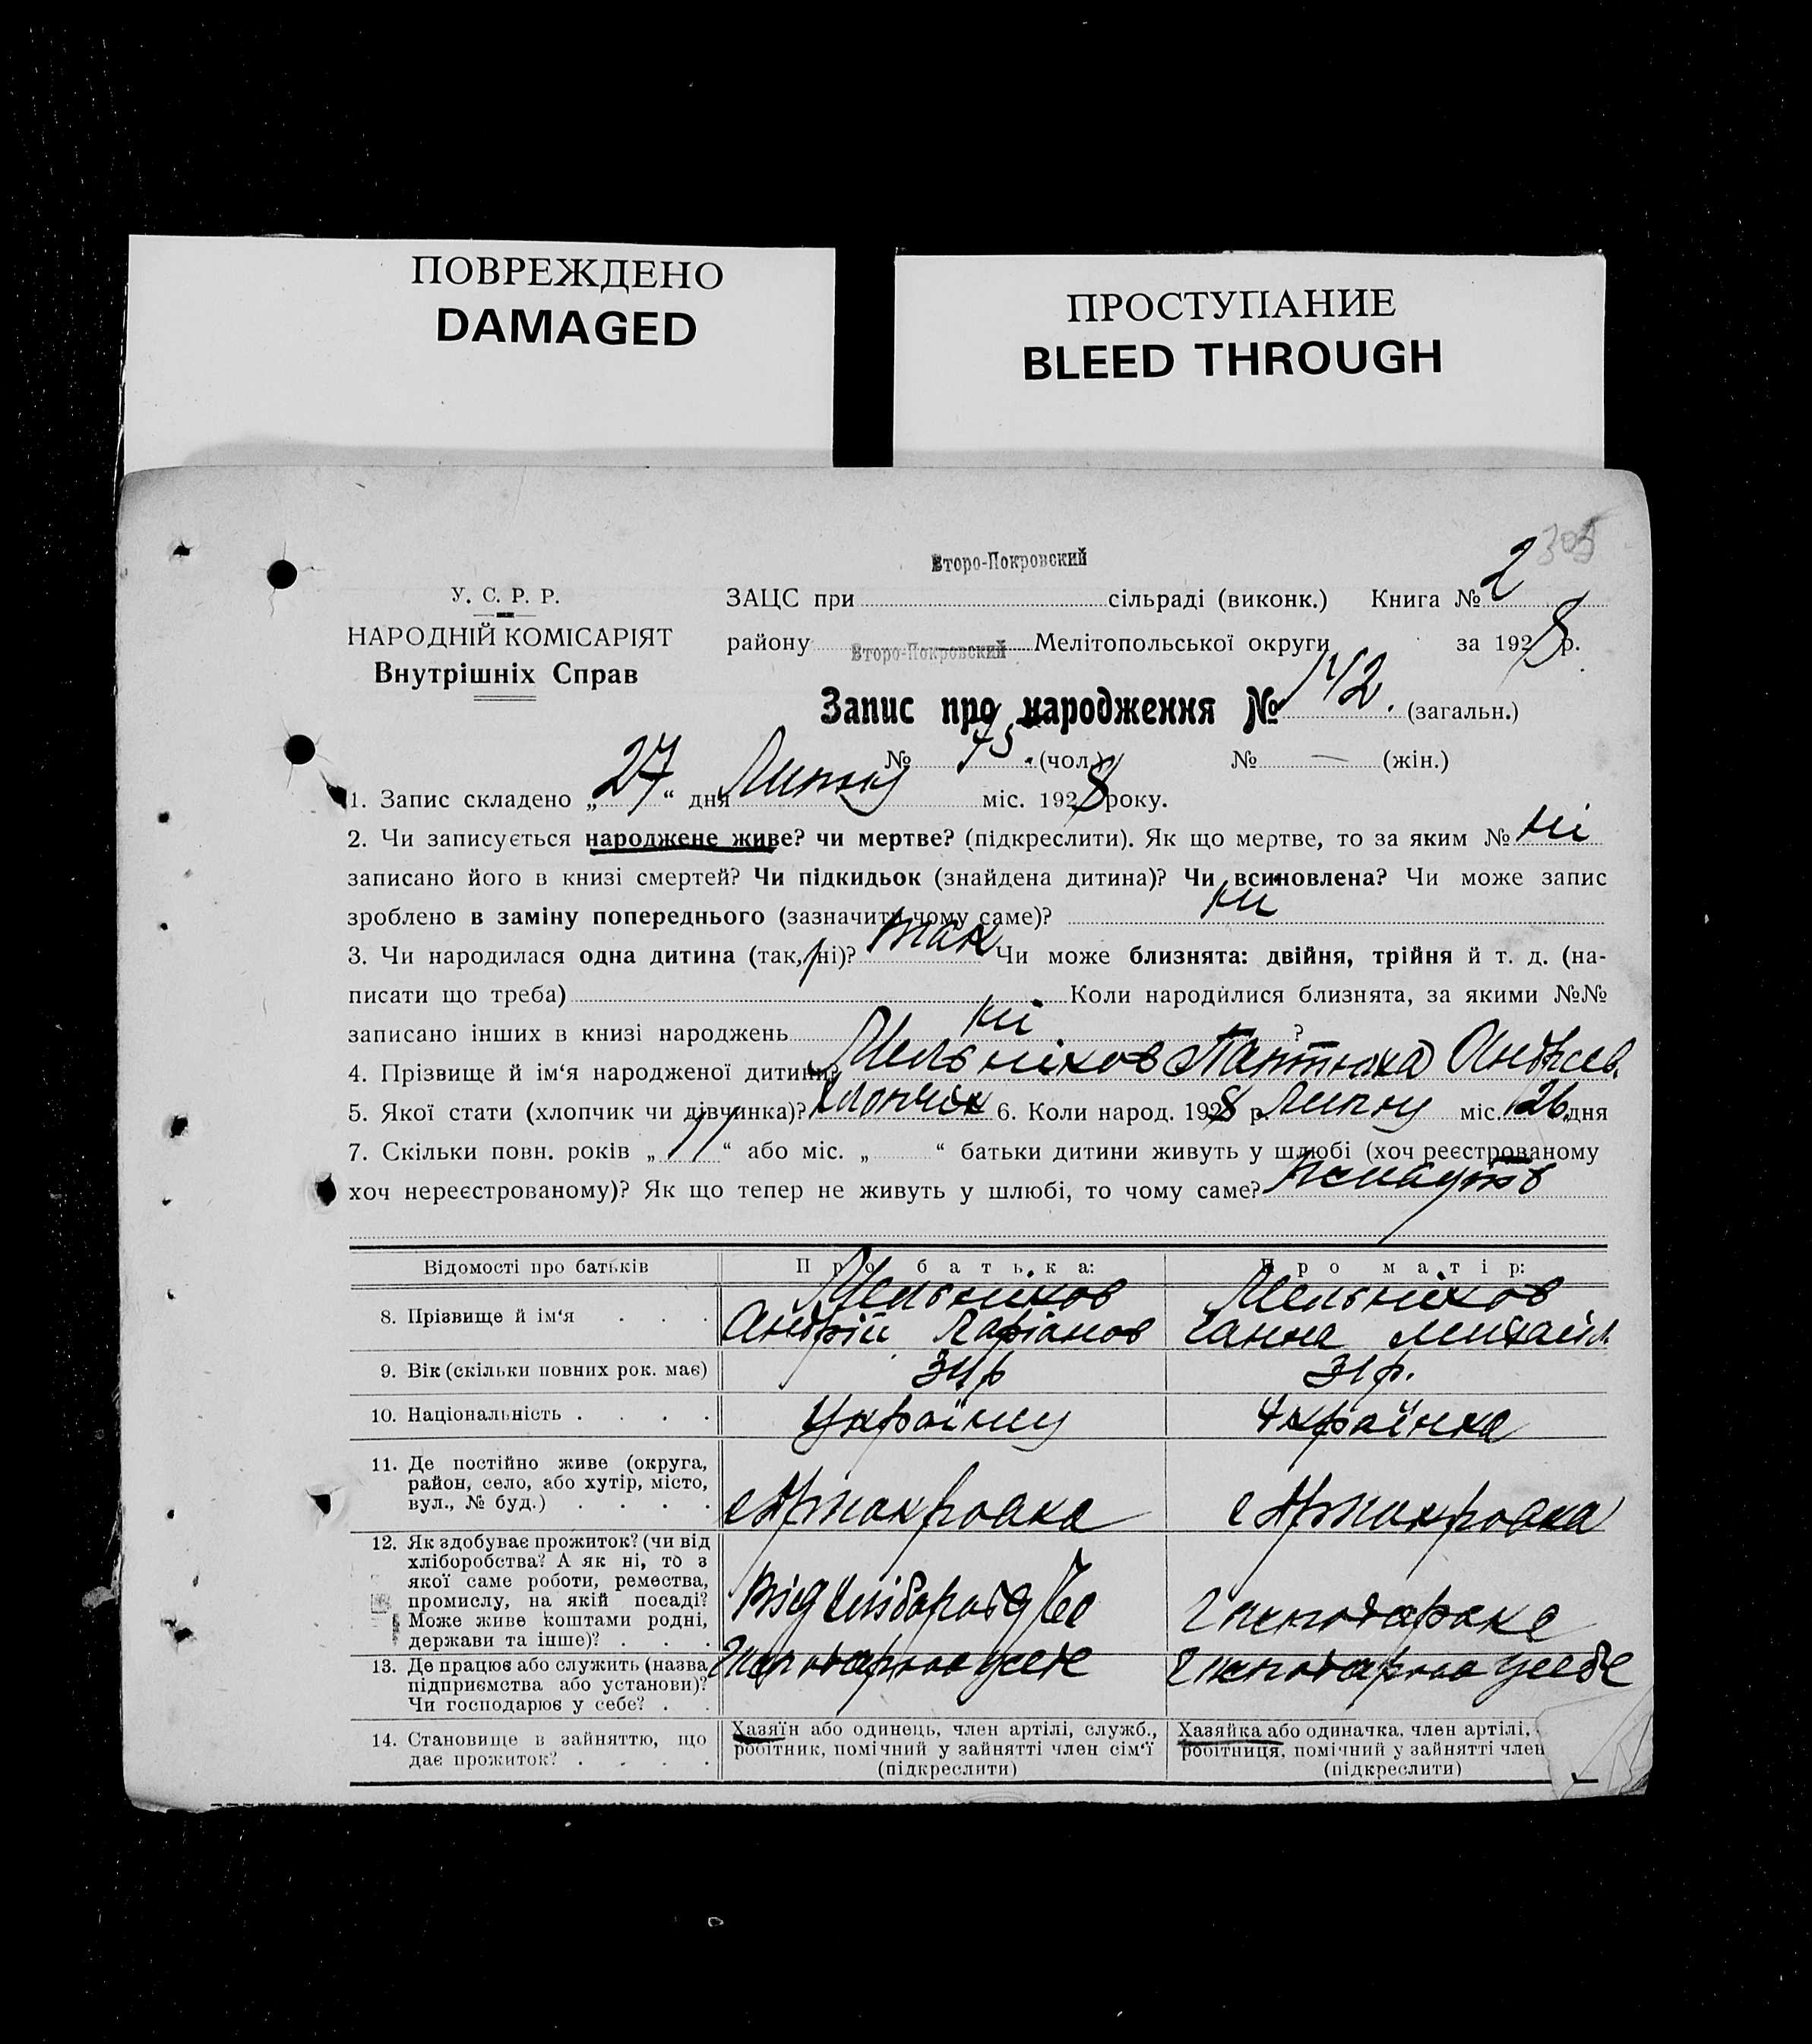 ПОВРЕЖДЕНО
DAMAGED
ПРОСТУПАНИЕ
BLEED THROUGH
305
Второ-Покровский
У. С. Р. Р.
НАРОДНІЙ КОМІСАРІЯТ
Внутрішніх Справ
ЗАЦС при сільраді (виконк.) Книга № 2
району Второ-Покровский Мелітопольської округи за 1928 р.
Запис про народження № 142. (загальн.)
№ 75. (чол.) № — (жін.)
1. Запис складено „27“ дня Липня міс. 1928 року.
2. Чи записується народжене живе? чи мертве? (підкреслити). Як що мертве, то за яким № ні
записано його в книзі смертей? Чи підкидьок (знайдена дитина)? Чи всиновлена? Чи може запис
зроблено в заміну попереднього (зазначити чому саме)? ні
3. Чи народилася одна дитина (так, ні)? так Чи може близнята: двійня, трійня й т. д. (на-
писати що треба) Коли народилися близнята, за якими №№
записано інших в книзі народжень ні ?
4. Прізвище й ім'я народженої дитини? Мельніков Андреев.
5. Якої стати (хлопчик чи дівчинка)? Хлопчик 6. Коли народ. 1928 р. Липну міс. 26 дня
7. Скільки повн. років „11“ або міс. „ “ батьки дитини живуть у шлюбі (хоч реєстрованому
хоч нереєстрованому)? Як що тепер не живуть у шлюбі, то чому саме?
Відомості про батьків Про батька: Про матір:
8. Прізвище й ім'я Мельніков Мельніков
Андрій Ларіонов Ганна Михайл
9. Вік (скільки повних рок. має) 34р 31р.
10. Національність Українцу Українка
11. Де постійно живе (округа,
район, село, або хутір, місто,
вул., № буд.)
12. Як здобуває прожиток? (чи від
хліборобства? А як ні, то з
якої саме роботи, ремества,
промислу, на якій посаді?
Може живе коштами родні,
держави та інше)?
13. Де працює або служить (назва
підприємства або установи)?
Чи господарює у себе?
14. Становище в зайняттю, що
дає прожиток?
Хазяїн або одинець, член артілі, служб.,
робітник, помічний у зайнятті член сім'ї
(підкреслити)
Хазяйка або одиначка, член артілі,
робітниця, помічний у зайнятті член
(підкреслити)